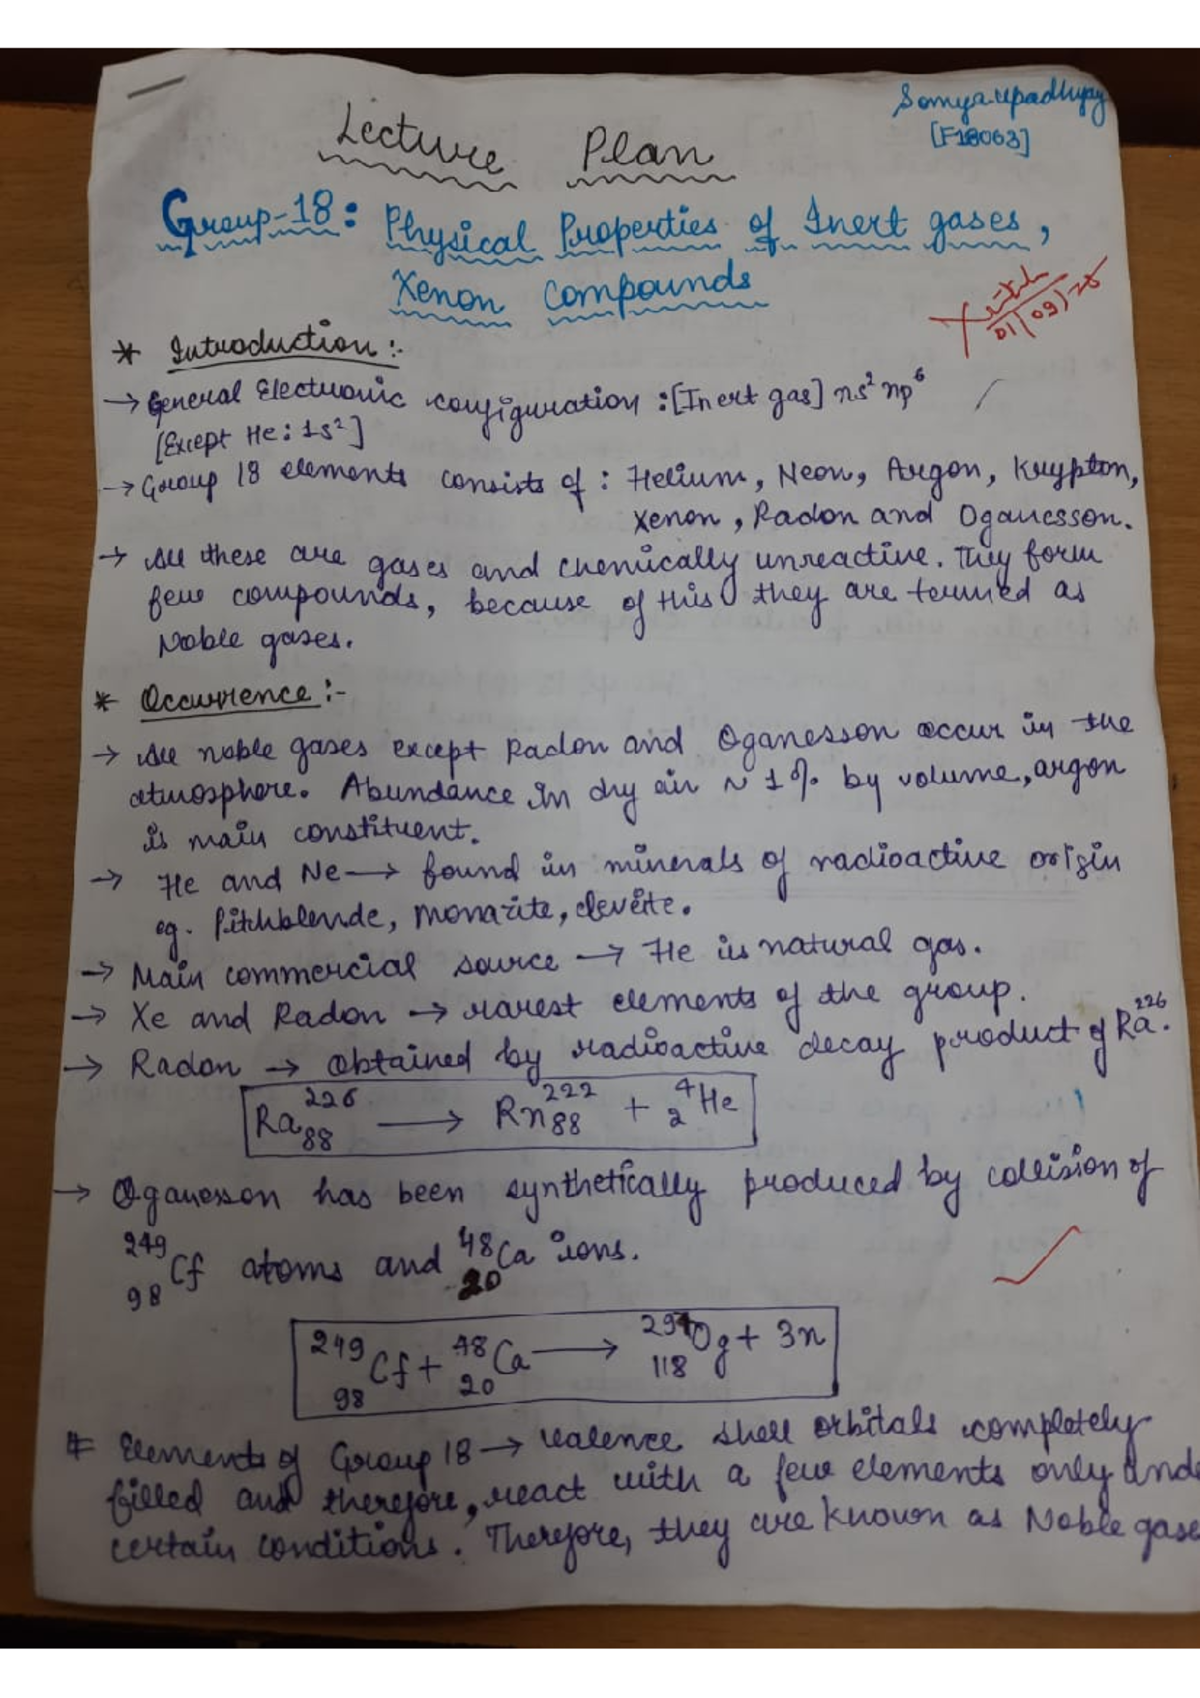 Somya Upadhyay
[F18063]
Lecture Plan
Group-18: Physical Properties of Inert gases,
Xenon compounds
01/09/25
* Introduction:-
→ General Electronic configuration :[Inert gas] ns² np⁶
[Except He: 1s²]
→ Group 18 elements consists of : Helium, Neon, Argon, Krypton,
Xenon, Radon and Oganesson.
→ All these are gases and chemically unreactive. They form
few compounds, because of this they are termed as
Noble gases.
* Occurrence :-
→ All noble gases except Radon and Oganesson occur in the
atmosphere. Abundance in dry air ~ 1% by volume, argon
is main constituent.
→ He and Ne → found in minerals of radioactive origin
eg. Pitchblende, monazite, cleveite.
→ Main commercial source → He is natural gas.
→ Xe and Radon → rarest elements of the group.
→ Radon → obtained by radioactive decay product of Ra²²⁶.
Ra₈₈²²⁶ → Rn₈₈²²² + ⁴₂He
→ Oganesson has been synthetically produced by collision of
²⁴⁹₉₈Cf atoms and ⁴⁸₂₀Ca ions.
²⁴⁹₉₈Cf + ⁴⁸₂₀Ca → ²⁹⁴₁₁₈Og + 3n
# Elements of Group 18 → valence shell orbitals completely
filled and therefore, react with a few elements only unde
certain conditions. Therefore, they are known as Noble gase